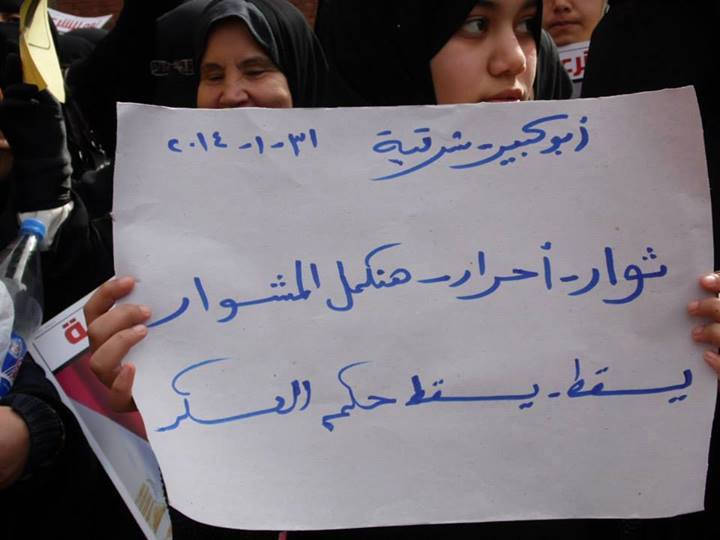 أبو كبير - شرقية ٣١-١-٢٠١٤
ثوار - أحرار - هنكمل المشوار
يسقط - يسقط حكم العسكر